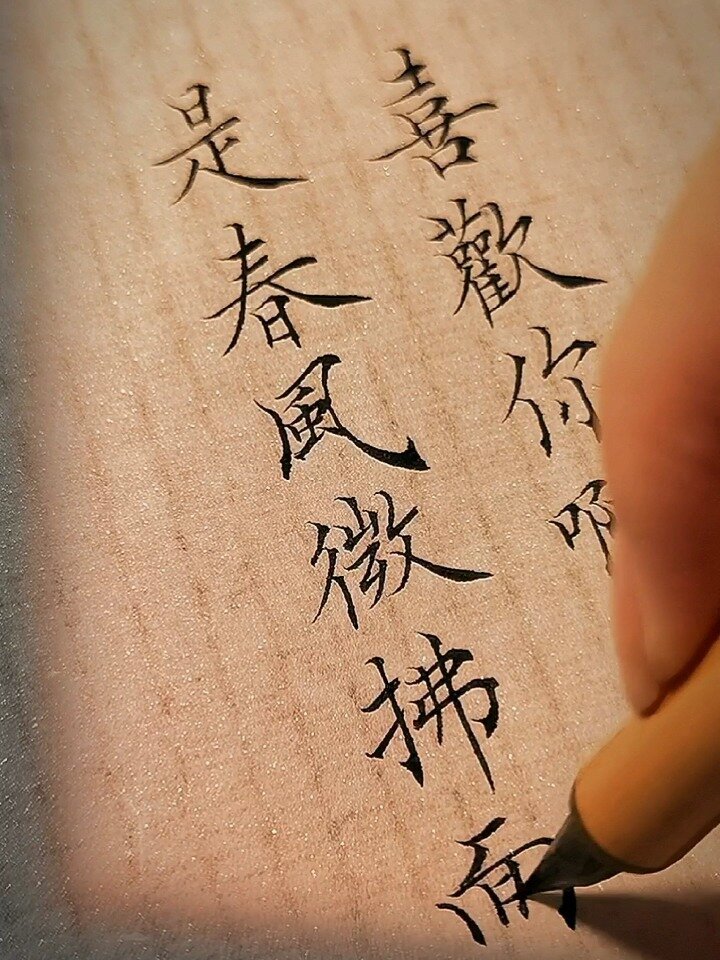 喜歡你啊
是春風微拂面